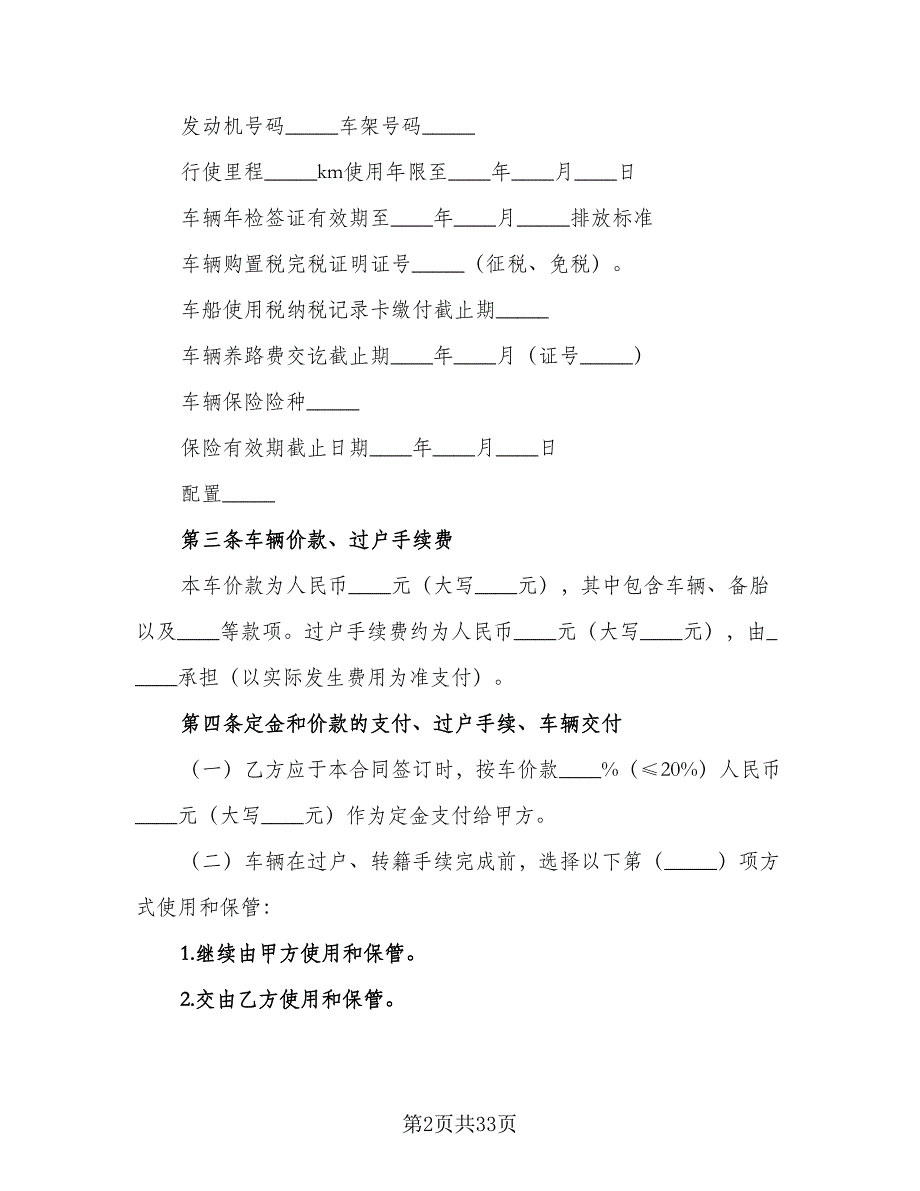 发动机号码_____车架号码_____
行使里程_____km使用年限至____年____月____日
车辆年检签证有效期至____年____月_____排放标准
车辆购置税完税证明证号_____（征税、免税）。
车船使用税纳税记录卡缴付截止期_____
车辆养路费交讫截止期____年____月（证号_____）
车辆保险险种_____
保险有效期截止日期____年____月____日
配置_____
第三条车辆价款、过户手续费
本车价款为人民币____元（大写____元），其中包含车辆、备胎
以及____等款项。过户手续费约为人民币____元（大写____元），由_
____承担（以实际发生费用为准支付）。
第四条定金和价款的支付、过户手续、车辆交付
（一）乙方应于本合同签订时，按车价款____%（≤20%）人民币
____元（大写____元）作为定金支付给甲方。
（二）车辆在过户、转籍手续完成前，选择以下第（_____）项方
式使用和保管：
1.继续由甲方使用和保管。
2.交由乙方使用和保管。
第2页共33页